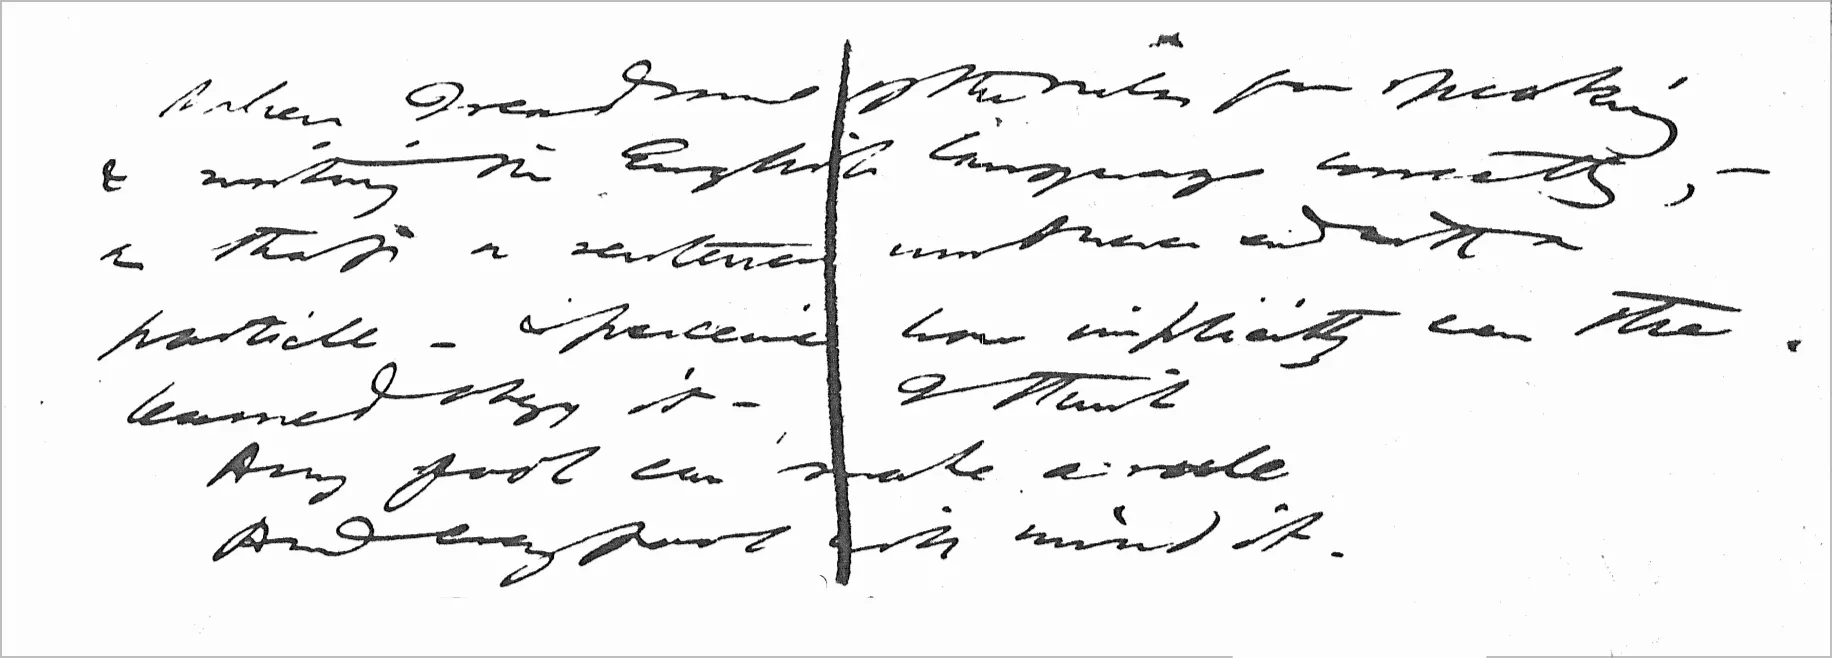 When I read some of the rules for speaking
& writing the English language correctly, —
as that a sentence must never end with a
particle — & perceive how implicitly even the
learned obey it — I think
Any fool can make a rule
And every fool will mind it.